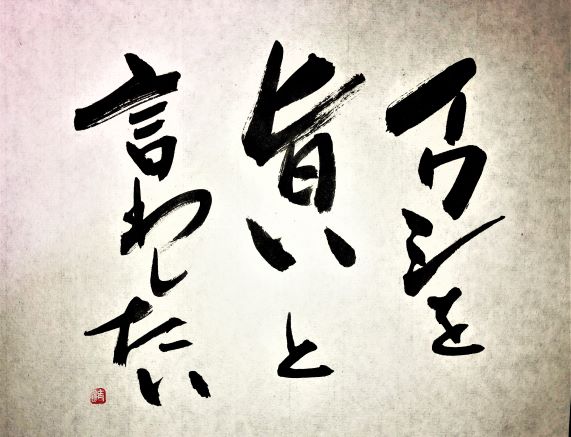 イワシを
旨いと
言わしたい